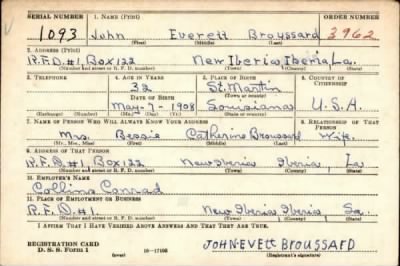 SERIAL NUMBER 1. NAME (Print) ORDER NUMBER
1093 John Everett Broussard 3962
(First) (Middle) (Last)
2. ADDRESS (Print)
R.F.D.#1, Box 122 New Iberia, Iberia, La.
(Number and street or R. F. D. number) (Town) (County) (State)
3. TELEPHONE 4. AGE IN YEARS 5. PLACE OF BIRTH 6. COUNTRY OF CITIZENSHIP
32 St. Martin
DATE OF BIRTH (Town or county)
May-7-1908 Louisiana U.S.A.
(Exchange) (Number) (Mo.) (Day) (Yr.) (State or country)
7. NAME OF PERSON WHO WILL ALWAYS KNOW YOUR ADDRESS 8. RELATIONSHIP OF THAT PERSON
Mrs. Bessie Catherine Broussard Wife.
(Mr., Mrs., Miss) (First) (Middle) (Last)
9. ADDRESS OF THAT PERSON
R.F.D.#1, Box 122 New Iberia Iberia La
(Number and street or R. F. D. number) (Town) (County) (State)
10. EMPLOYER'S NAME
Collins Conrad
11. PLACE OF EMPLOYMENT OR BUSINESS
R.F.D.#1. New Iberia Iberia La.
(Number and street or R. F. D. number) (Town) (County) (State)
I AFFIRM THAT I HAVE VERIFIED ABOVE ANSWERS AND THAT THEY ARE TRUE.
REGISTRATION CARD
D. S. S. Form 1 (over) 16-17105 JOHN-EVETT BROUSSARD
(Registrant's signature)